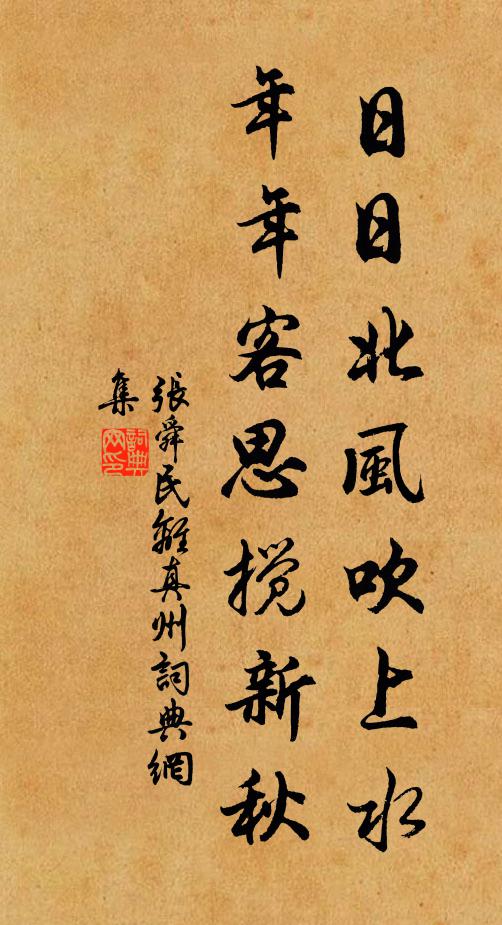 日日北風吹上水
年年客思搅新秋
張舜民離真州詞典網
集
詞典
网印